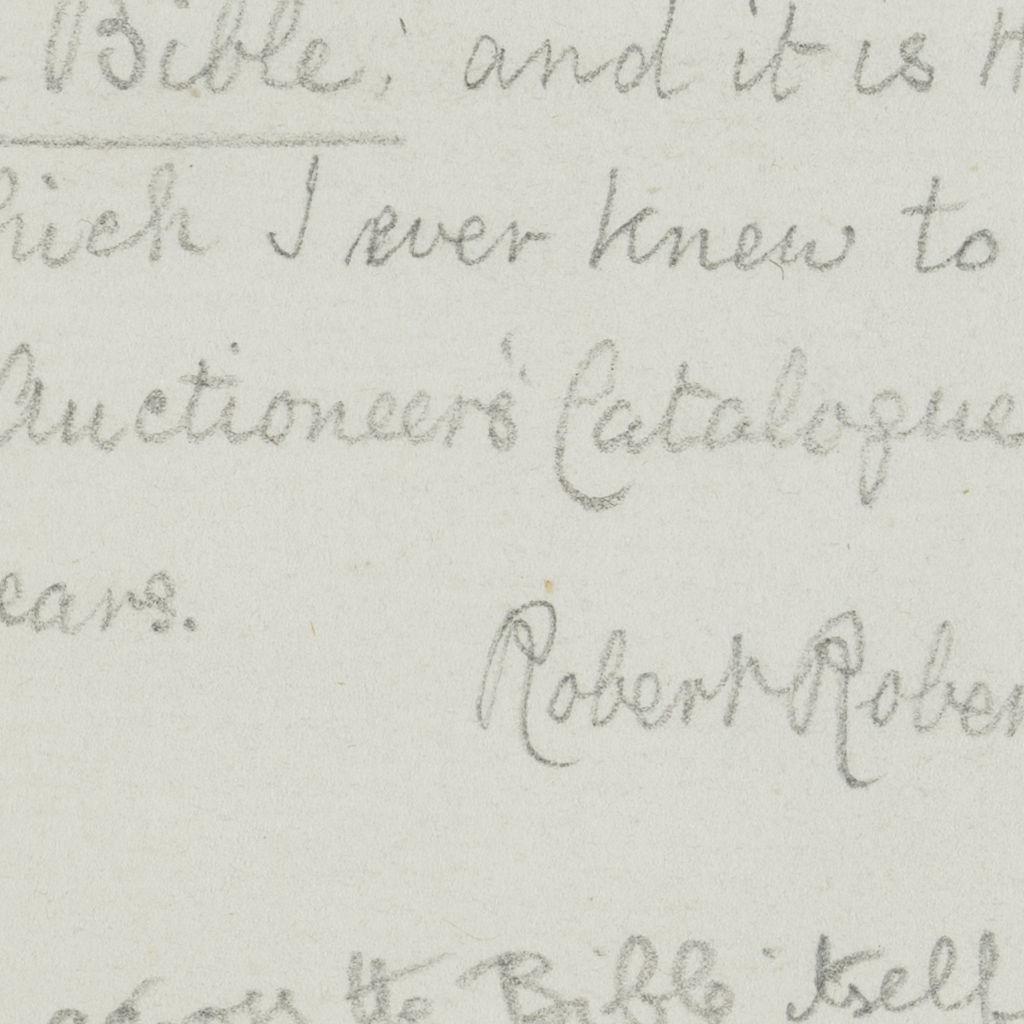 Bible; and it is
which I ever knew to
Auctioneers' Catalogue
ears.
Robert Rober
the Bible itself